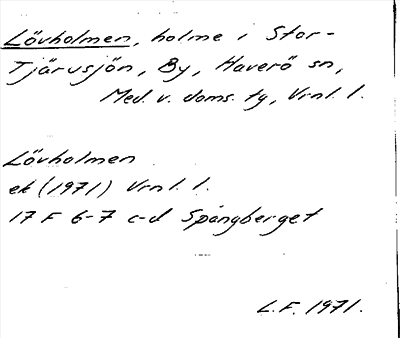 Lövholmen, holme i Stor-
Tjärusjön, By, Haverö sn,
Med. v. doms. tg, Vrnl. l.
Lövholmen
ek (1971) Vrnl. l.
17 F 6-7 c-d Spångberget
L.F. 1971.